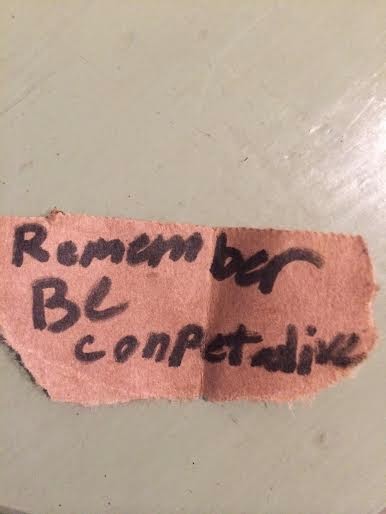 Remember
Be
conpetative